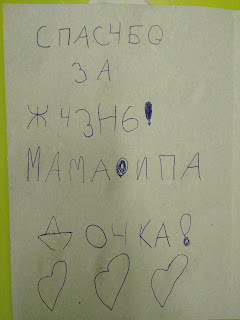 СПАСЧБО
ЗА
ЖЧЗНЬ!
МАМАОИПА
ДОЧКА!